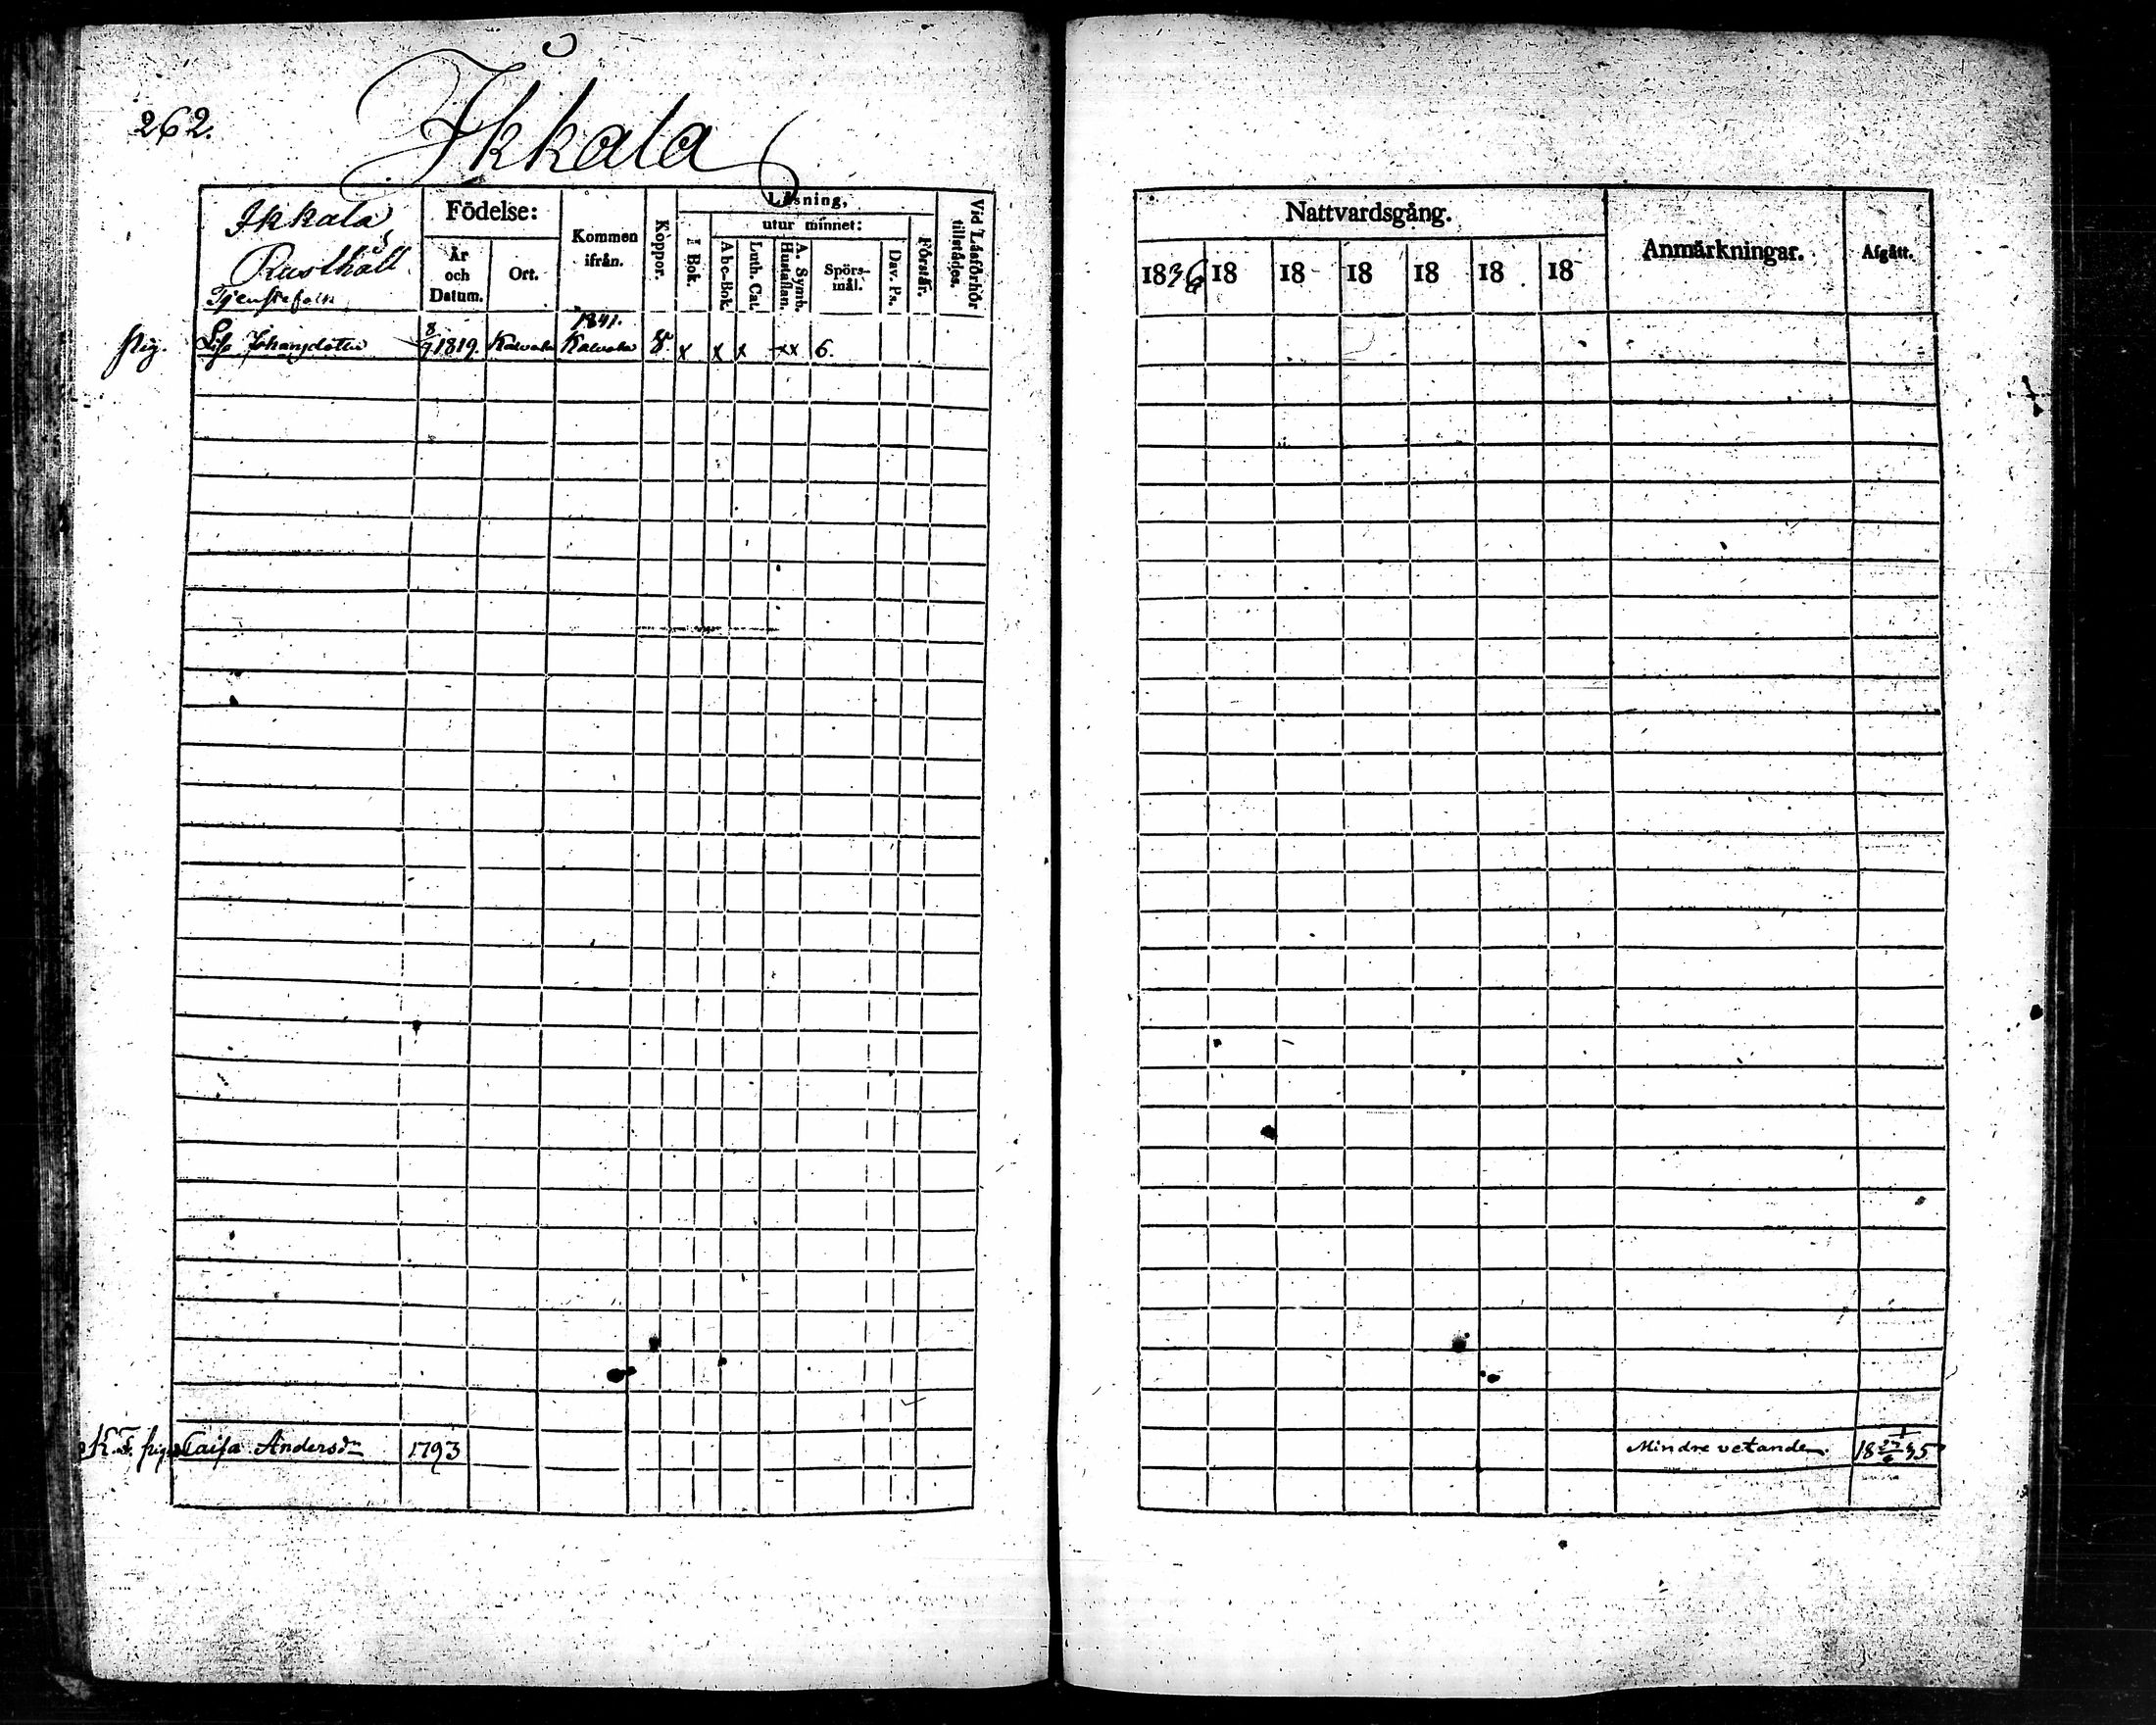 262.
Ikkala
Ikkala
Rusthåll.
Tjenstefolk
Födelse:
År och Datum.
Ort.
Kommen ifrån.
Koppor.
Läsning,
I Bok.
utur minnet:
Abc-Bok.
Luth. Cat.
A. Symb. Hustaflan.
Spörs-mål.
Dav. Ps.
Förstår.
Vid Läsförhör tillstädes.
Nattvardsgång.
1836 18 18 18 18 18 18
Anmärkningar.
Afgått.
1841.
pig. Lisa Johansdotter 8/7 1819. Kalvola Kalvola x x x xx 6.
Caisa Andersdr 1793 Mindre vetande. 18 27/6 35